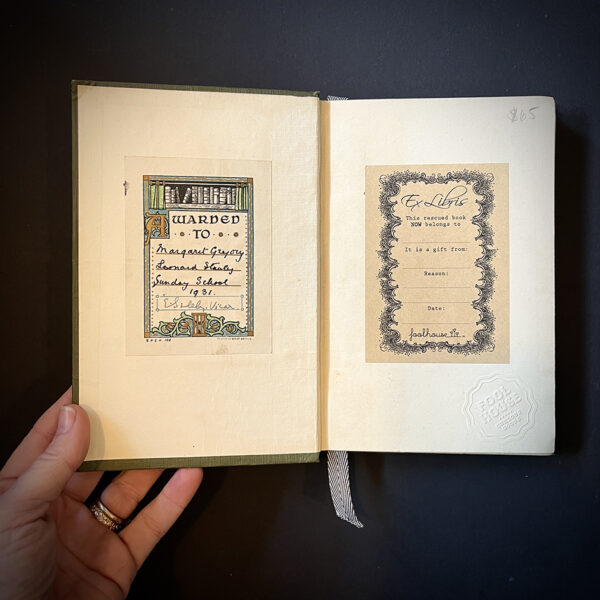 AWARDED
TO
Margaret Gregory
Leonard Stanley
Sunday School
1931.
Vicar
$65
Ex Libris
This rescued book
NOW belongs to
It is a gift from:
Reason:
Date:
foolhouse
FOOL
HOUSE